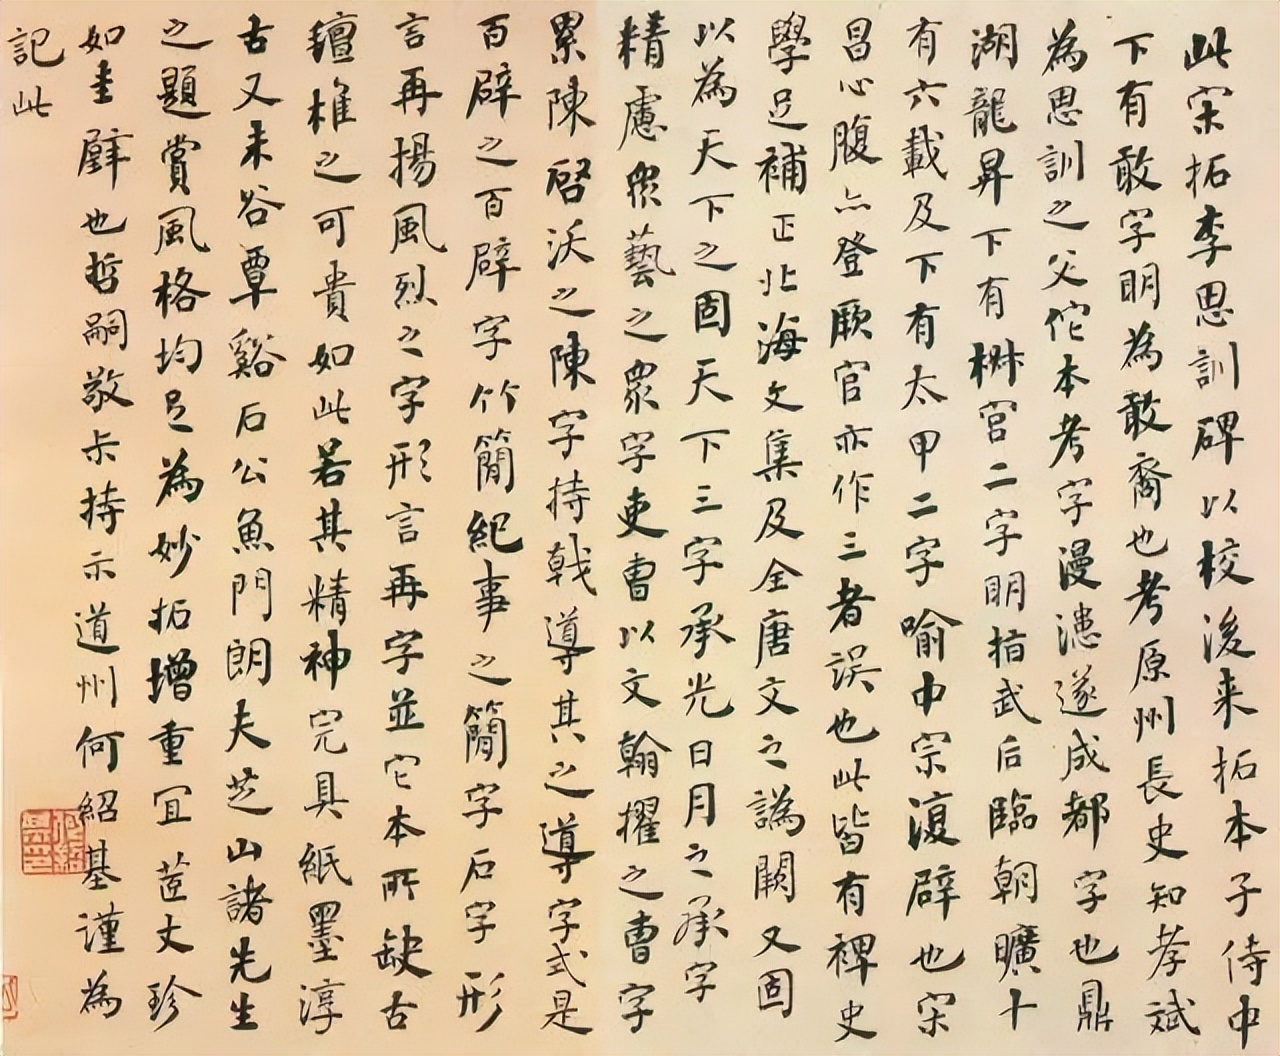 此宋拓李思訓碑以校後来拓本子侍中
下有敢字明為敢裔也考原州長史知孝斌
為思訓之父佗本考字漫漶遂成都字也鼎
湖龍昇下有椒宮二字明指武后臨朝曠十
有六載及下有太甲二字喻中宗復辟也宋
昌心腹亦登厥官亦作三者誤也此皆有裨史
學足補正北海文集及全唐文之譌闕又固
以為天下之固天下三字承光日月之承字
精慮衆藝之衆字吏曹以文翰擢之曹字
累陳啓沃之陳字持戟導其之導字式是
百辟之百辟字竹簡紀事之簡字石字形
言再揚風烈之字形言再字並它本所缺古
氊椎之可貴如此若其精神完具紙墨淳
古又未谷覃谿石公魚門朗夫芝山諸先生
之題賞風格均足為妙拓增重宜莖丈珍
如圭璧也哲嗣敬卡持示道州何紹基謹為
記此